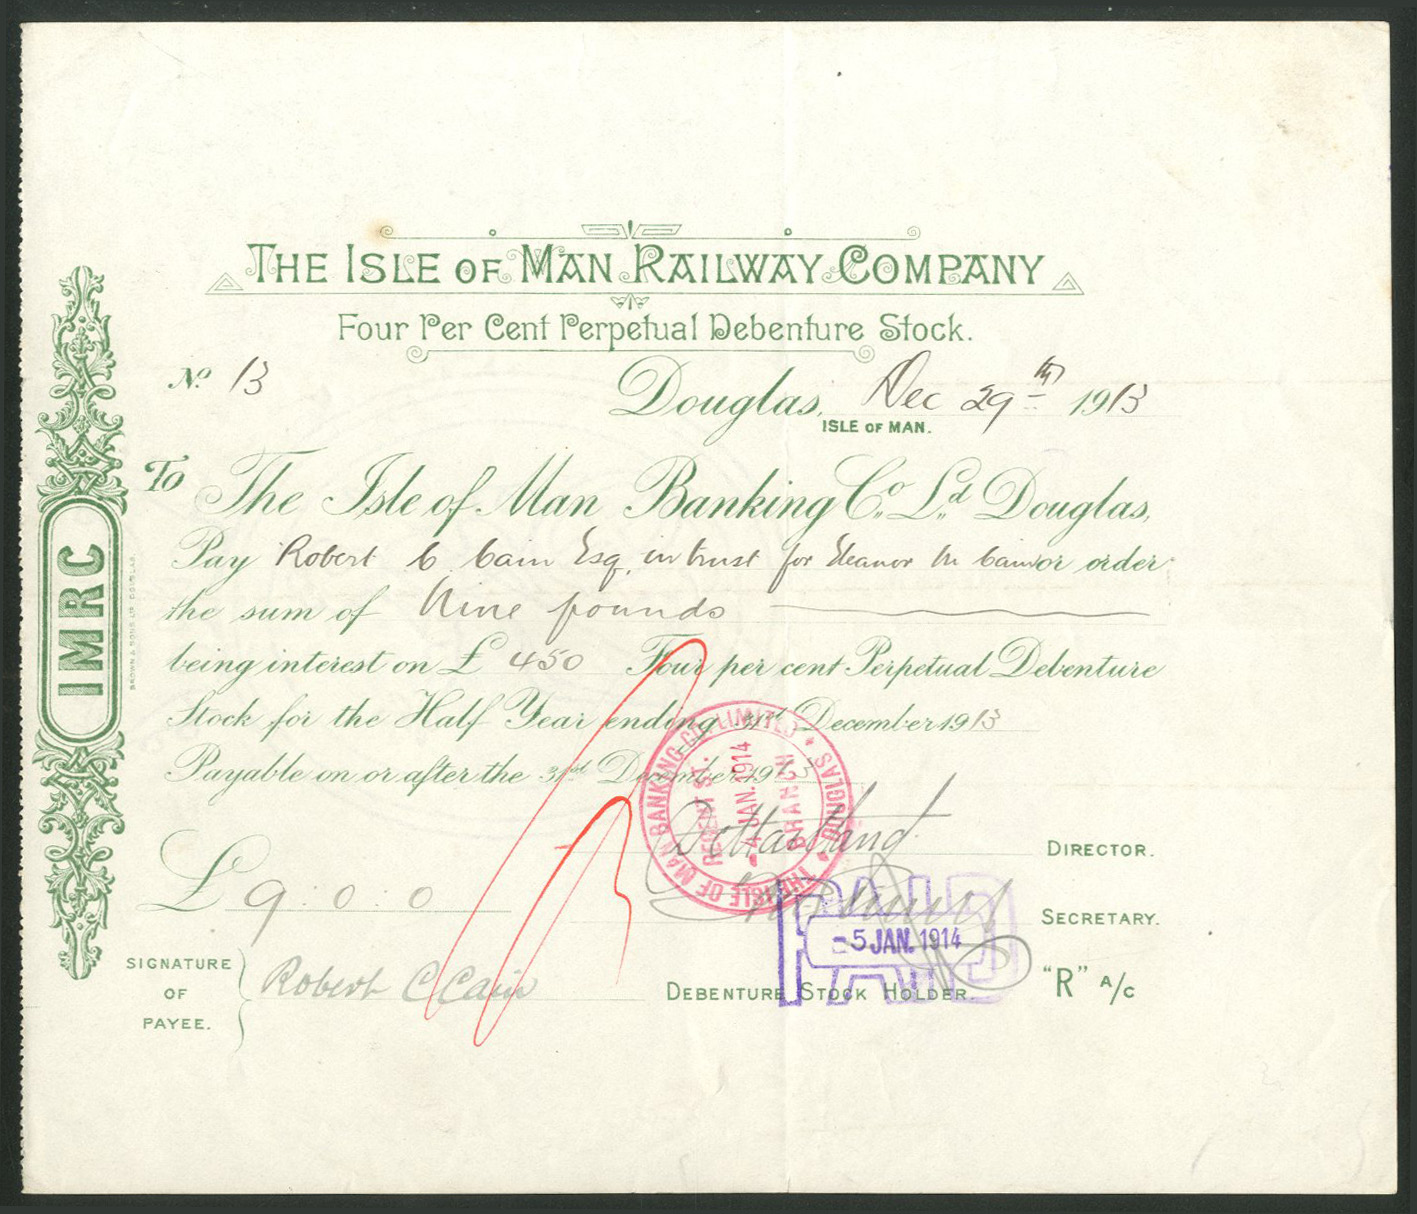 THE ISLE OF MAN RAILWAY COMPANY
Four Per Cent Perpetual Debenture Stock.
No. 13
Douglas, Dec 29th 1913
ISLE OF MAN.
To The Isle of Man Banking Co. Ld. Douglas,
Pay Robert C Cain Esq. in trust for Eleanor M Cain or order
the sum of Nine pounds
being interest on £ 450 Four per cent Perpetual Debenture
Stock for the Half Year ending 31st December 1913
Payable on or after the 31st December 1913
DIRECTOR.
£ 9:0:0
SECRETARY.
SIGNATURE OF PAYEE.
Robert C Cain
DEBENTURE STOCK HOLDER.
"R" A/C
IMRC
BROWN & SONS LTD DOUGLAS
THE ISLE OF MAN BANKING CO. LIMITED DOUGLAS
REGENT ST.
-4 JAN. 1914
BRANCH
PAID
-5 JAN. 1914